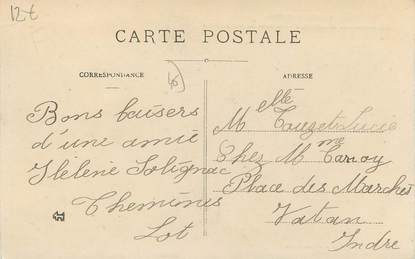 12€
CARTE POSTALE
CORRESPONDANCE
ADRESSE
Bons baisers
d'une amie
Hélène Solignac
Themines
Lot
Melle Touzet Lucie
Chez Mme Carnoy
Place des Marchés
Vatan
Indre